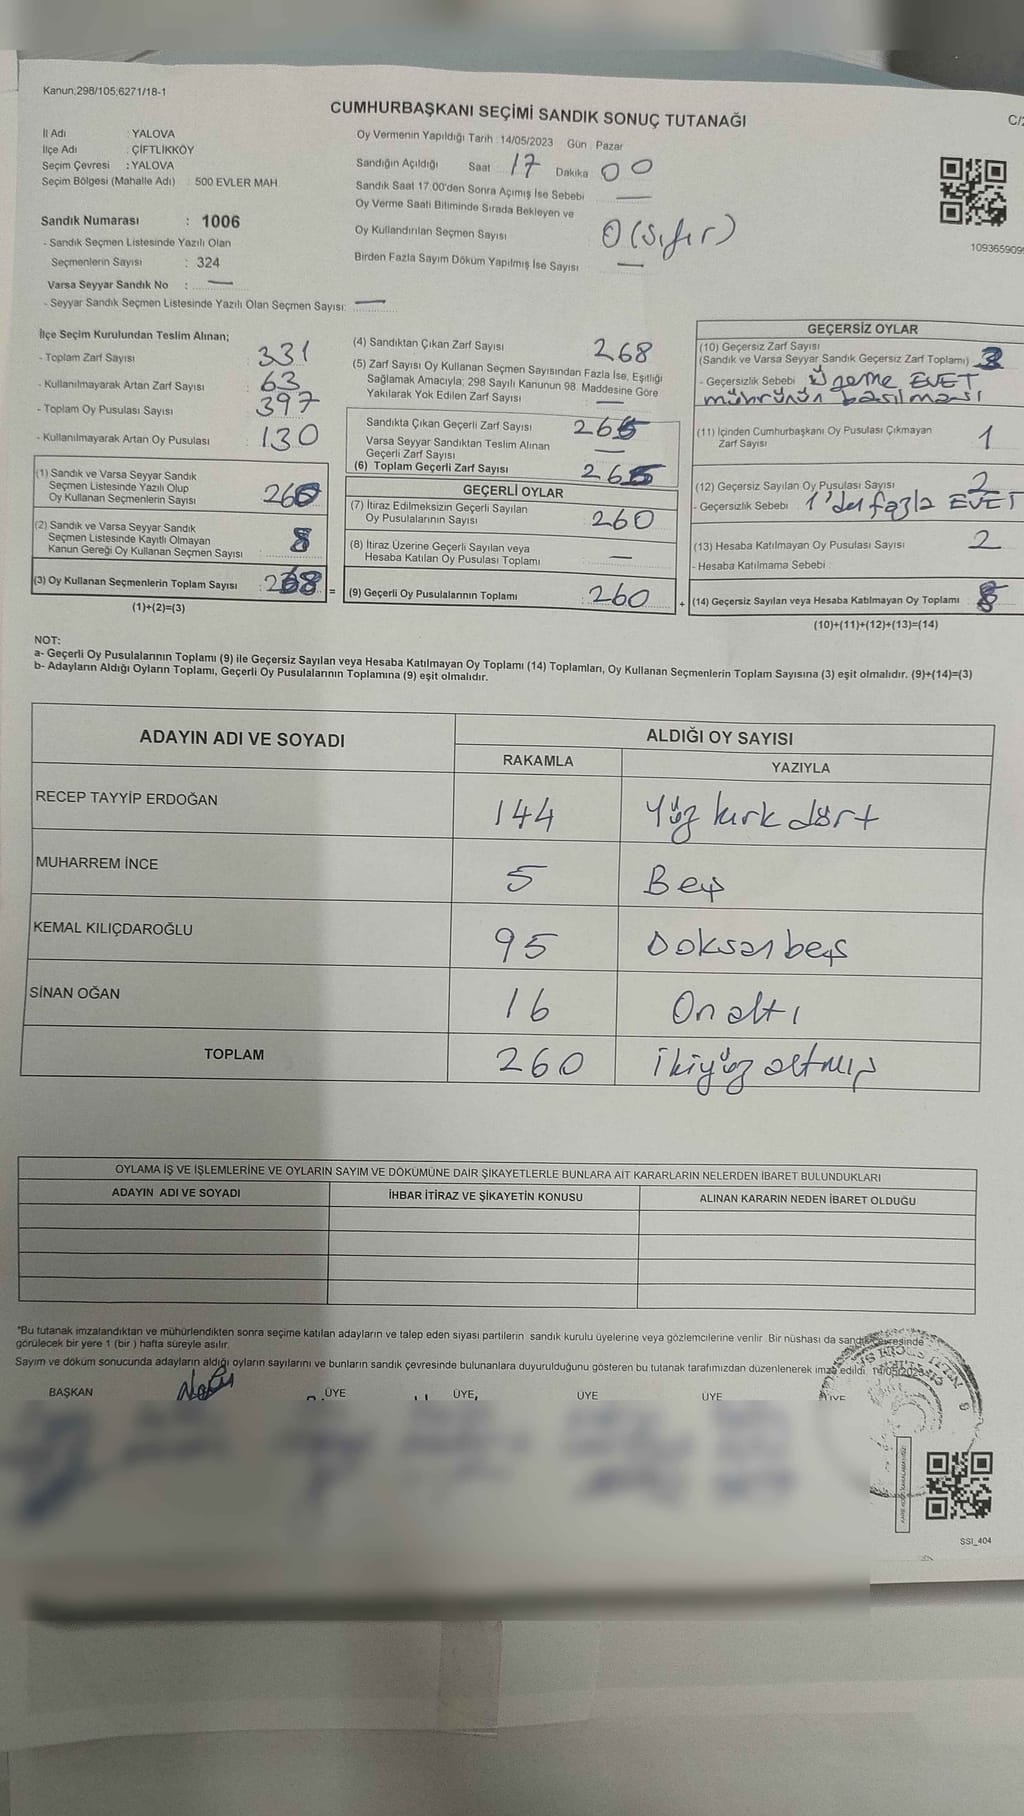 Kanun;298/105;6271/18-1
CUMHURBAŞKANI SEÇİMİ SANDIK SONUÇ TUTANAĞI
İl Adı : YALOVA
İlçe Adı : ÇİFTLİKKÖY
Seçim Çevresi : YALOVA
Seçim Bölgesi (Mahalle Adı) 500 EVLER MAH
Sandık Numarası : 1006
- Sandık Seçmen Listesinde Yazılı Olan
Seçmenlerin Sayısı : 324
Varsa Seyyar Sandık No : —
- Seyyar Sandık Seçmen Listesinde Yazılı Olan Seçmen Sayısı: —
Oy Vermenin Yapıldığı Tarih : 14/05/2023 Gün : Pazar
Sandığın Açıldığı Saat 17 Dakika 00
Sandık Saat 17:00'den Sonra Açımış İse Sebebi —
Oy Verme Saati Bitiminde Sırada Bekleyen ve
Oy Kullandırılan Seçmen Sayısı 0 (sıfır)
Birden Fazla Sayım Döküm Yapılmış İse Sayısı —
İlçe Seçim Kurulundan Teslim Alınan;
- Toplam Zarf Sayısı 331
- Kullanılmayarak Artan Zarf Sayısı 63
- Toplam Oy Pusulası Sayısı 397
- Kullanılmayarak Artan Oy Pusulası 130
(1) Sandık ve Varsa Seyyar Sandık
Seçmen Listesinde Yazılı Olup
Oy Kullanan Seçmenlerin Sayısı 260
(2) Sandık ve Varsa Seyyar Sandık
Seçmen Listesinde Kayıtlı Olmayan
Kanun Gereği Oy Kullanan Seçmen Sayısı 8
(3) Oy Kullanan Seçmenlerin Toplam Sayısı : 268 =
(1)+(2)=(3)
(4) Sandıktan Çıkan Zarf Sayısı 268
(5) Zarf Sayısı Oy Kullanan Seçmen Sayısından Fazla İse, Eşitliği
Sağlamak Amacıyla; 298 Sayılı Kanunun 98. Maddesine Göre
Yakılarak Yok Edilen Zarf Sayısı —
Sandıkta Çıkan Geçerli Zarf Sayısı 265
Varsa Seyyar Sandıktan Teslim Alınan
Geçerli Zarf Sayısı —
(6) Toplam Geçerli Zarf Sayısı 265
GEÇERLİ OYLAR
(7) İtiraz Edilmeksizin Geçerli Sayılan
Oy Pusulalarının Sayısı 260
(8) İtiraz Üzerine Geçerli Sayılan veya
Hesaba Katılan Oy Pusulası Toplamı —
(9) Geçerli Oy Pusulalarının Toplamı 260 +
GEÇERSİZ OYLAR
(10) Geçersiz Zarf Sayısı
(Sandık ve Varsa Seyyar Sandık Geçersiz Zarf Toplamı) 3
- Geçersizlik Sebebi Üzerine EVET
mührünün basılması
(11) İçinden Cumhurbaşkanı Oy Pusulası Çıkmayan
Zarf Sayısı 1
(12) Geçersiz Sayılan Oy Pusulası Sayısı 2
- Geçersizlik Sebebi 1'den fazla EVET
(13) Hesaba Katılmayan Oy Pusulası Sayısı 2
- Hesaba Katılmama Sebebi
(14) Geçersiz Sayılan veya Hesaba Katılmayan Oy Toplamı 8
(10)+(11)+(12)+(13)=(14)
NOT:
a- Geçerli Oy Pusulalarının Toplamı (9) ile Geçersiz Sayılan veya Hesaba Katılmayan Oy Toplamı (14) Toplamları, Oy Kullanan Seçmenlerin Toplam Sayısına (3) eşit olmalıdır. (9)+(14)=(3)
b- Adayların Aldığı Oyların Toplamı, Geçerli Oy Pusulalarının Toplamına (9) eşit olmalıdır.
ADAYIN ADI VE SOYADI ALDIĞI OY SAYISI
RAKAMLA YAZIYLA
RECEP TAYYİP ERDOĞAN 144 Yüz kırk dört
MUHARREM İNCE 5 Beş
KEMAL KILIÇDAROĞLU 95 Doksan beş
SİNAN OĞAN 16 On altı
TOPLAM 260 ikiyüz altmış
OYLAMA İŞ VE İŞLEMLERİNE VE OYLARIN SAYIM VE DÖKÜMÜNE DAİR ŞİKAYETLERLE BUNLARA AİT KARARLARIN NELERDEN İBARET BULUNDUKLARI
ADAYIN ADI VE SOYADI İHBAR İTİRAZ VE ŞİKAYETİN KONUSU ALINAN KARARIN NEDEN İBARET OLDUĞU
*Bu tutanak imzalandıktan ve mühürlendikten sonra seçime katılan adayların ve talep eden siyasi partilerin sandık kurulu üyelerine veya gözlemcilerine verilir. Bir nüshası da sandık çevresinde
görülecek bir yere 1 (bir ) hafta süreyle asılır.
Sayım ve döküm sonucunda adayların aldığı oyların sayılarını ve bunların sandık çevresinde bulunanlara duyurulduğunu gösteren bu tutanak tarafımızdan düzenlenerek imza edildi. 14/05/2023
BAŞKAN ÜYE ÜYE, ÜYE ÜYE
SSI_404